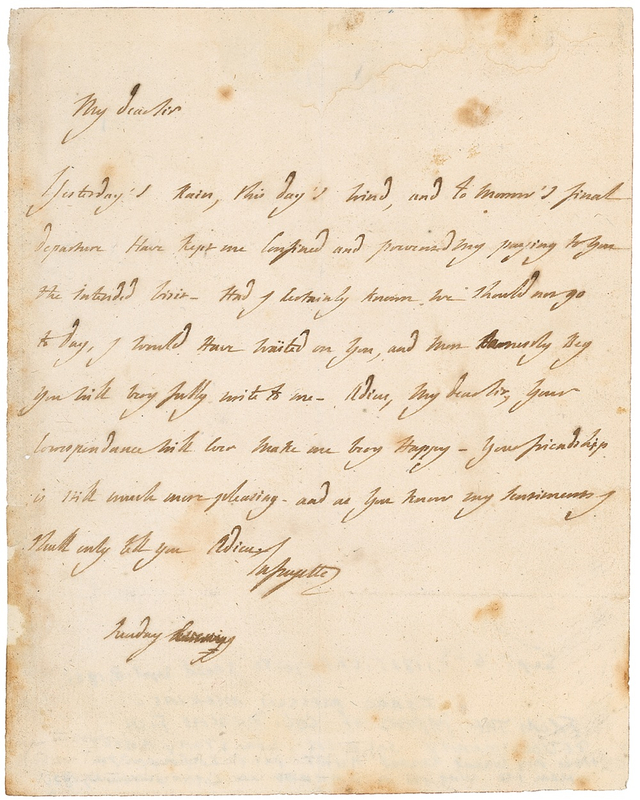 My dear Sir
Yesterday's Rain, this day's wind, and to Morrow's final
departure Have kept me Confined and prevented my paying to you
the intended visit - Had j Certainly known we should not go
to day, j would Have waited on you, and most earnestly Beg
you will very fully write to me - Adieu, My dear Sir, your
Correspondance will ever make me very Happy - your friendship
is still much more pleasing - and as you know my sentiments j
shall only tell you Adieu
Lafayette
Tuesday